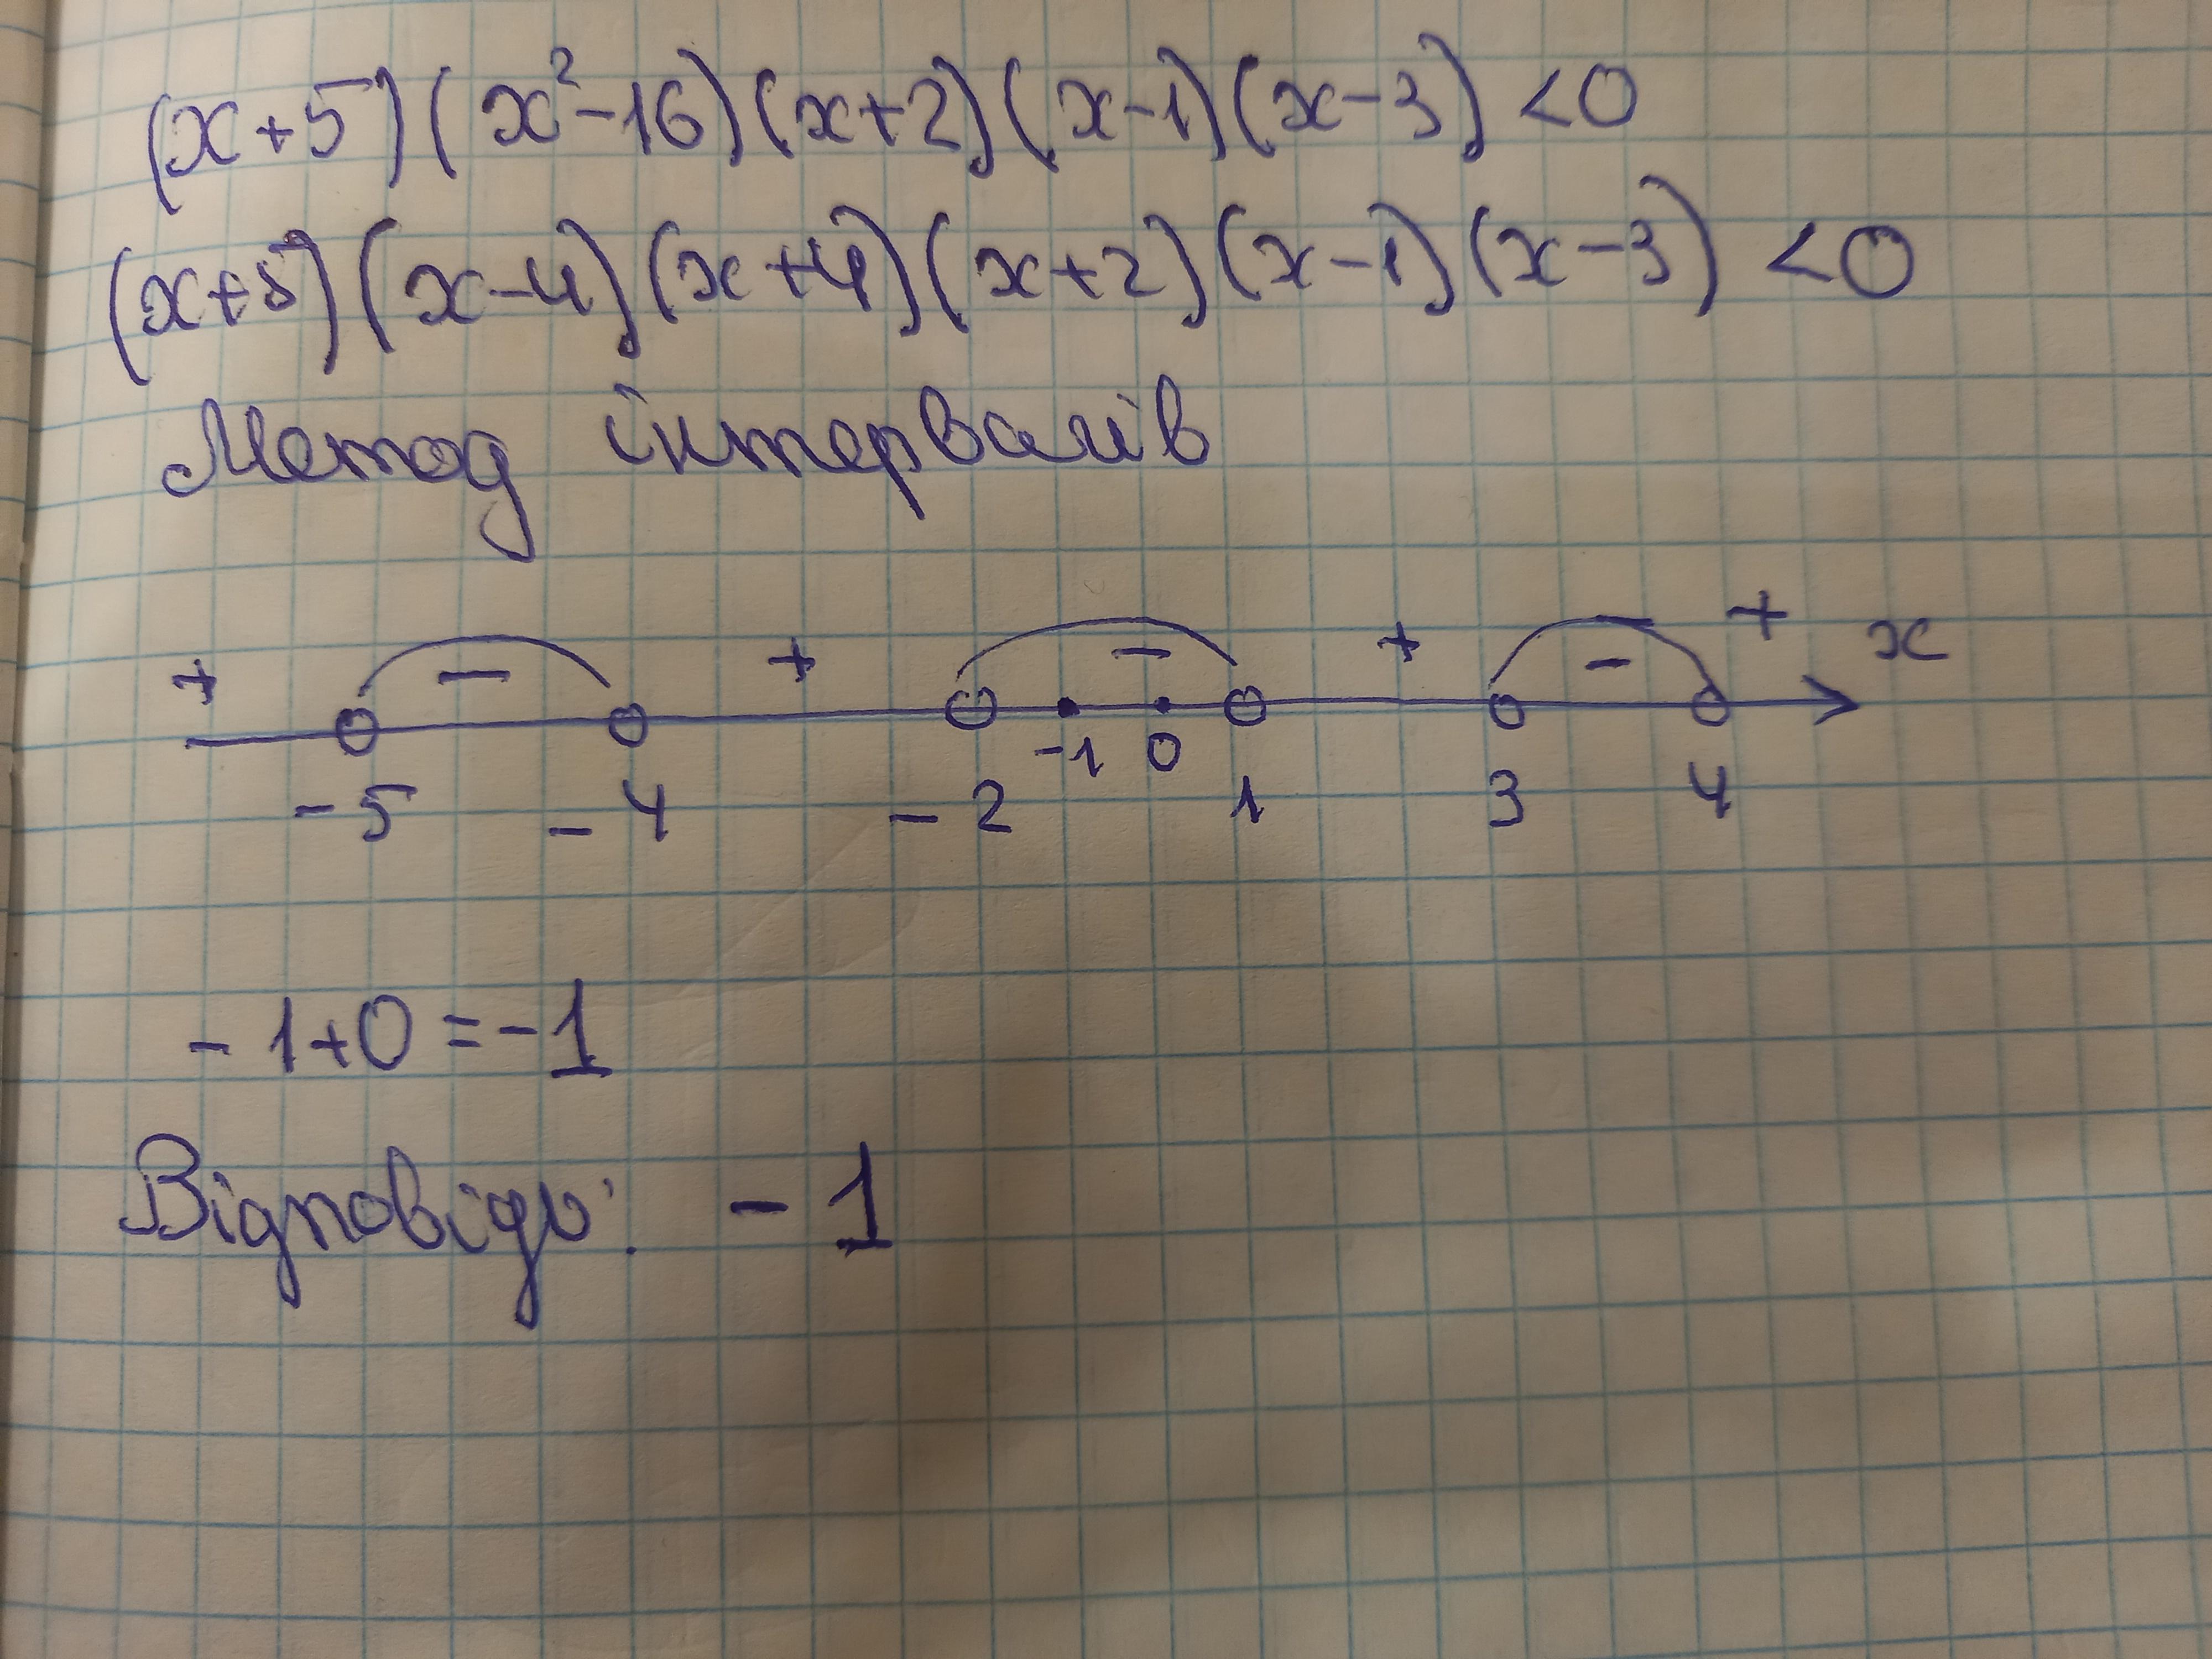 (x+5)(x²-16)(x+2)(x-1)(x-3)<0
(x+5)(x-4)(x+4)(x+2)(x-1)(x-3)<0
Метод інтервалів
+ − + − + − + x
-1 0
-5 -4 -2 1 3 4
-1+0=-1
Відповідь: -1